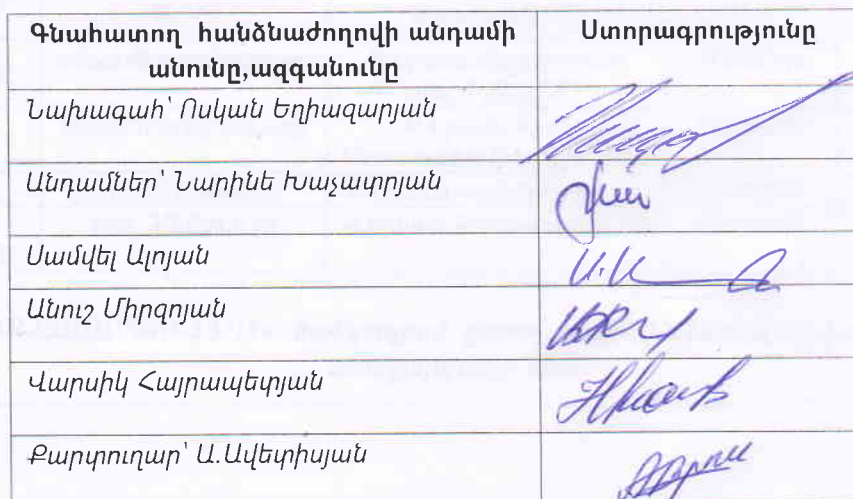 Գնահատող հանձնաժողովի անդամի Ստորագրությունը
անունը,ազգանունը
Նախագահ՝ Ոսկան Եղիազարյան
Անդամներ՝ Նարինե Խաչատրյան
Սամվել Ալոյան
Անուշ Միրզոյան
Վարսիկ Հայրապետյան
Քարտուղար՝ Ա.Ավետիսյան